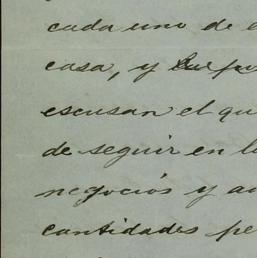 cada uno de
casa, y
escusan el qu
de seguir en l
negocios y a
cantidades pe